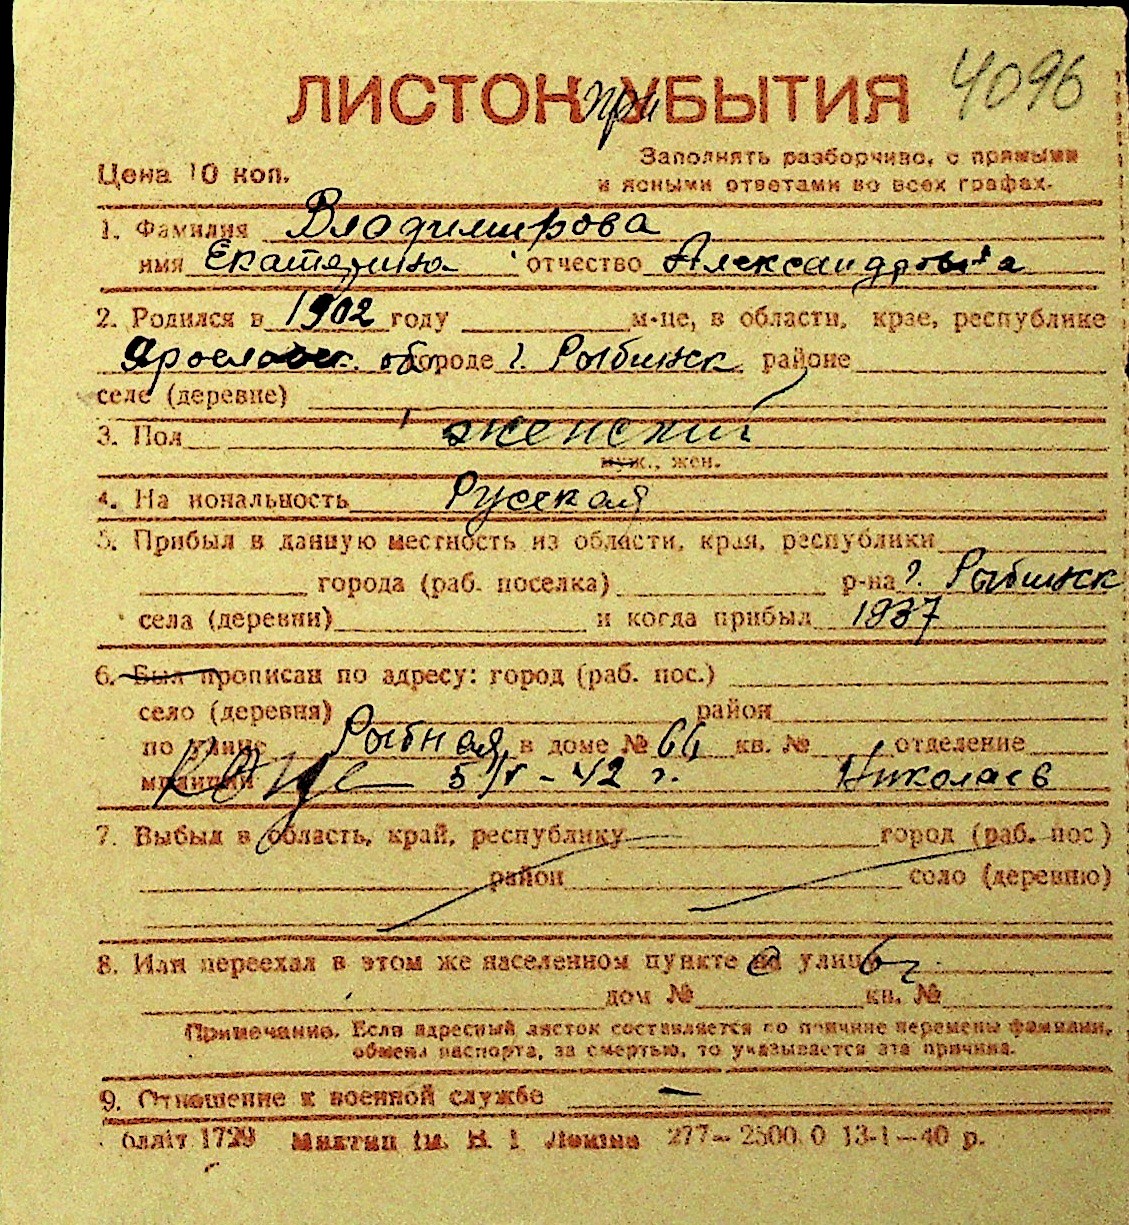 4096
ЛИСТОК при УБЫТИЯ
Цена 10 коп.
Заполнять разборчиво, с прямыми
и ясными ответами во всех графах.
1. Фамилия Владимирова
имя Екатерина отчество Александровна
2. Родился в 1902 году м-це, в области, крае, республике
Ярославск. об городе г. Рыбинск районе
селе (деревне)
3. Пол женский
муж., жен.
4. На иональность Русская
5. Прибыл в данную местность из области, края, республики
города (раб. поселка) р-на г. Рыбинск
села (деревни) и когда прибыл 1937
6. Был прописан по адресу: город (раб. пос.)
село (деревня) район
по улице Рыбная в доме № 66 кв. № отделение
милиции 5/V-42 г. Николаев
7. Выбыл в область, край, республику город (раб. пос.)
район село (деревню)
8. Или переехал в этом же населенном пункте на улицу
дом № кв. №
Примечание. Если адресный листок составляется по причине перемены фамилии,
обмена паспорта, за смертью, то указывается эта причина.
9. Отношение к военной службе —
1729 им. В. І. Леніна 277—2500.0 13-1—40 р.